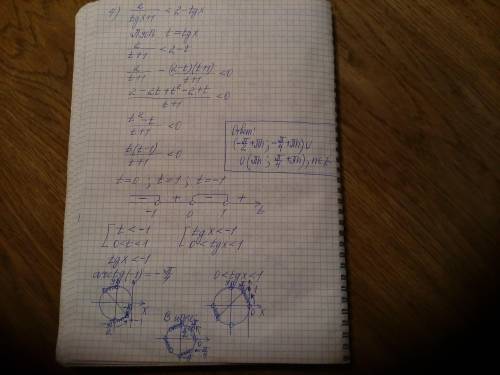 2/(tgx+1) < 2-tgx
Пусть t = tgx
2/(t+1) < 2-t
2/(t+1) - (2-t)(t+1)/(t+1) < 0
(2-2t+t²-2+t)/(t+1) < 0
(t²-t)/(t+1) < 0
t(t-1)/(t+1) < 0
t=0 ; t=1 ; t=-1
- + - +
-1 0 1 t
[ t < -1 [ tgx < -1
0<t<1 0 < tgx < 1
tgx < -1
arctg(-1) = -π/4 0<tgx<1
x
Ответ:
(-π/2+πn; -π/4+πn)∪
∪(πn; π/4+πn), n∈Z